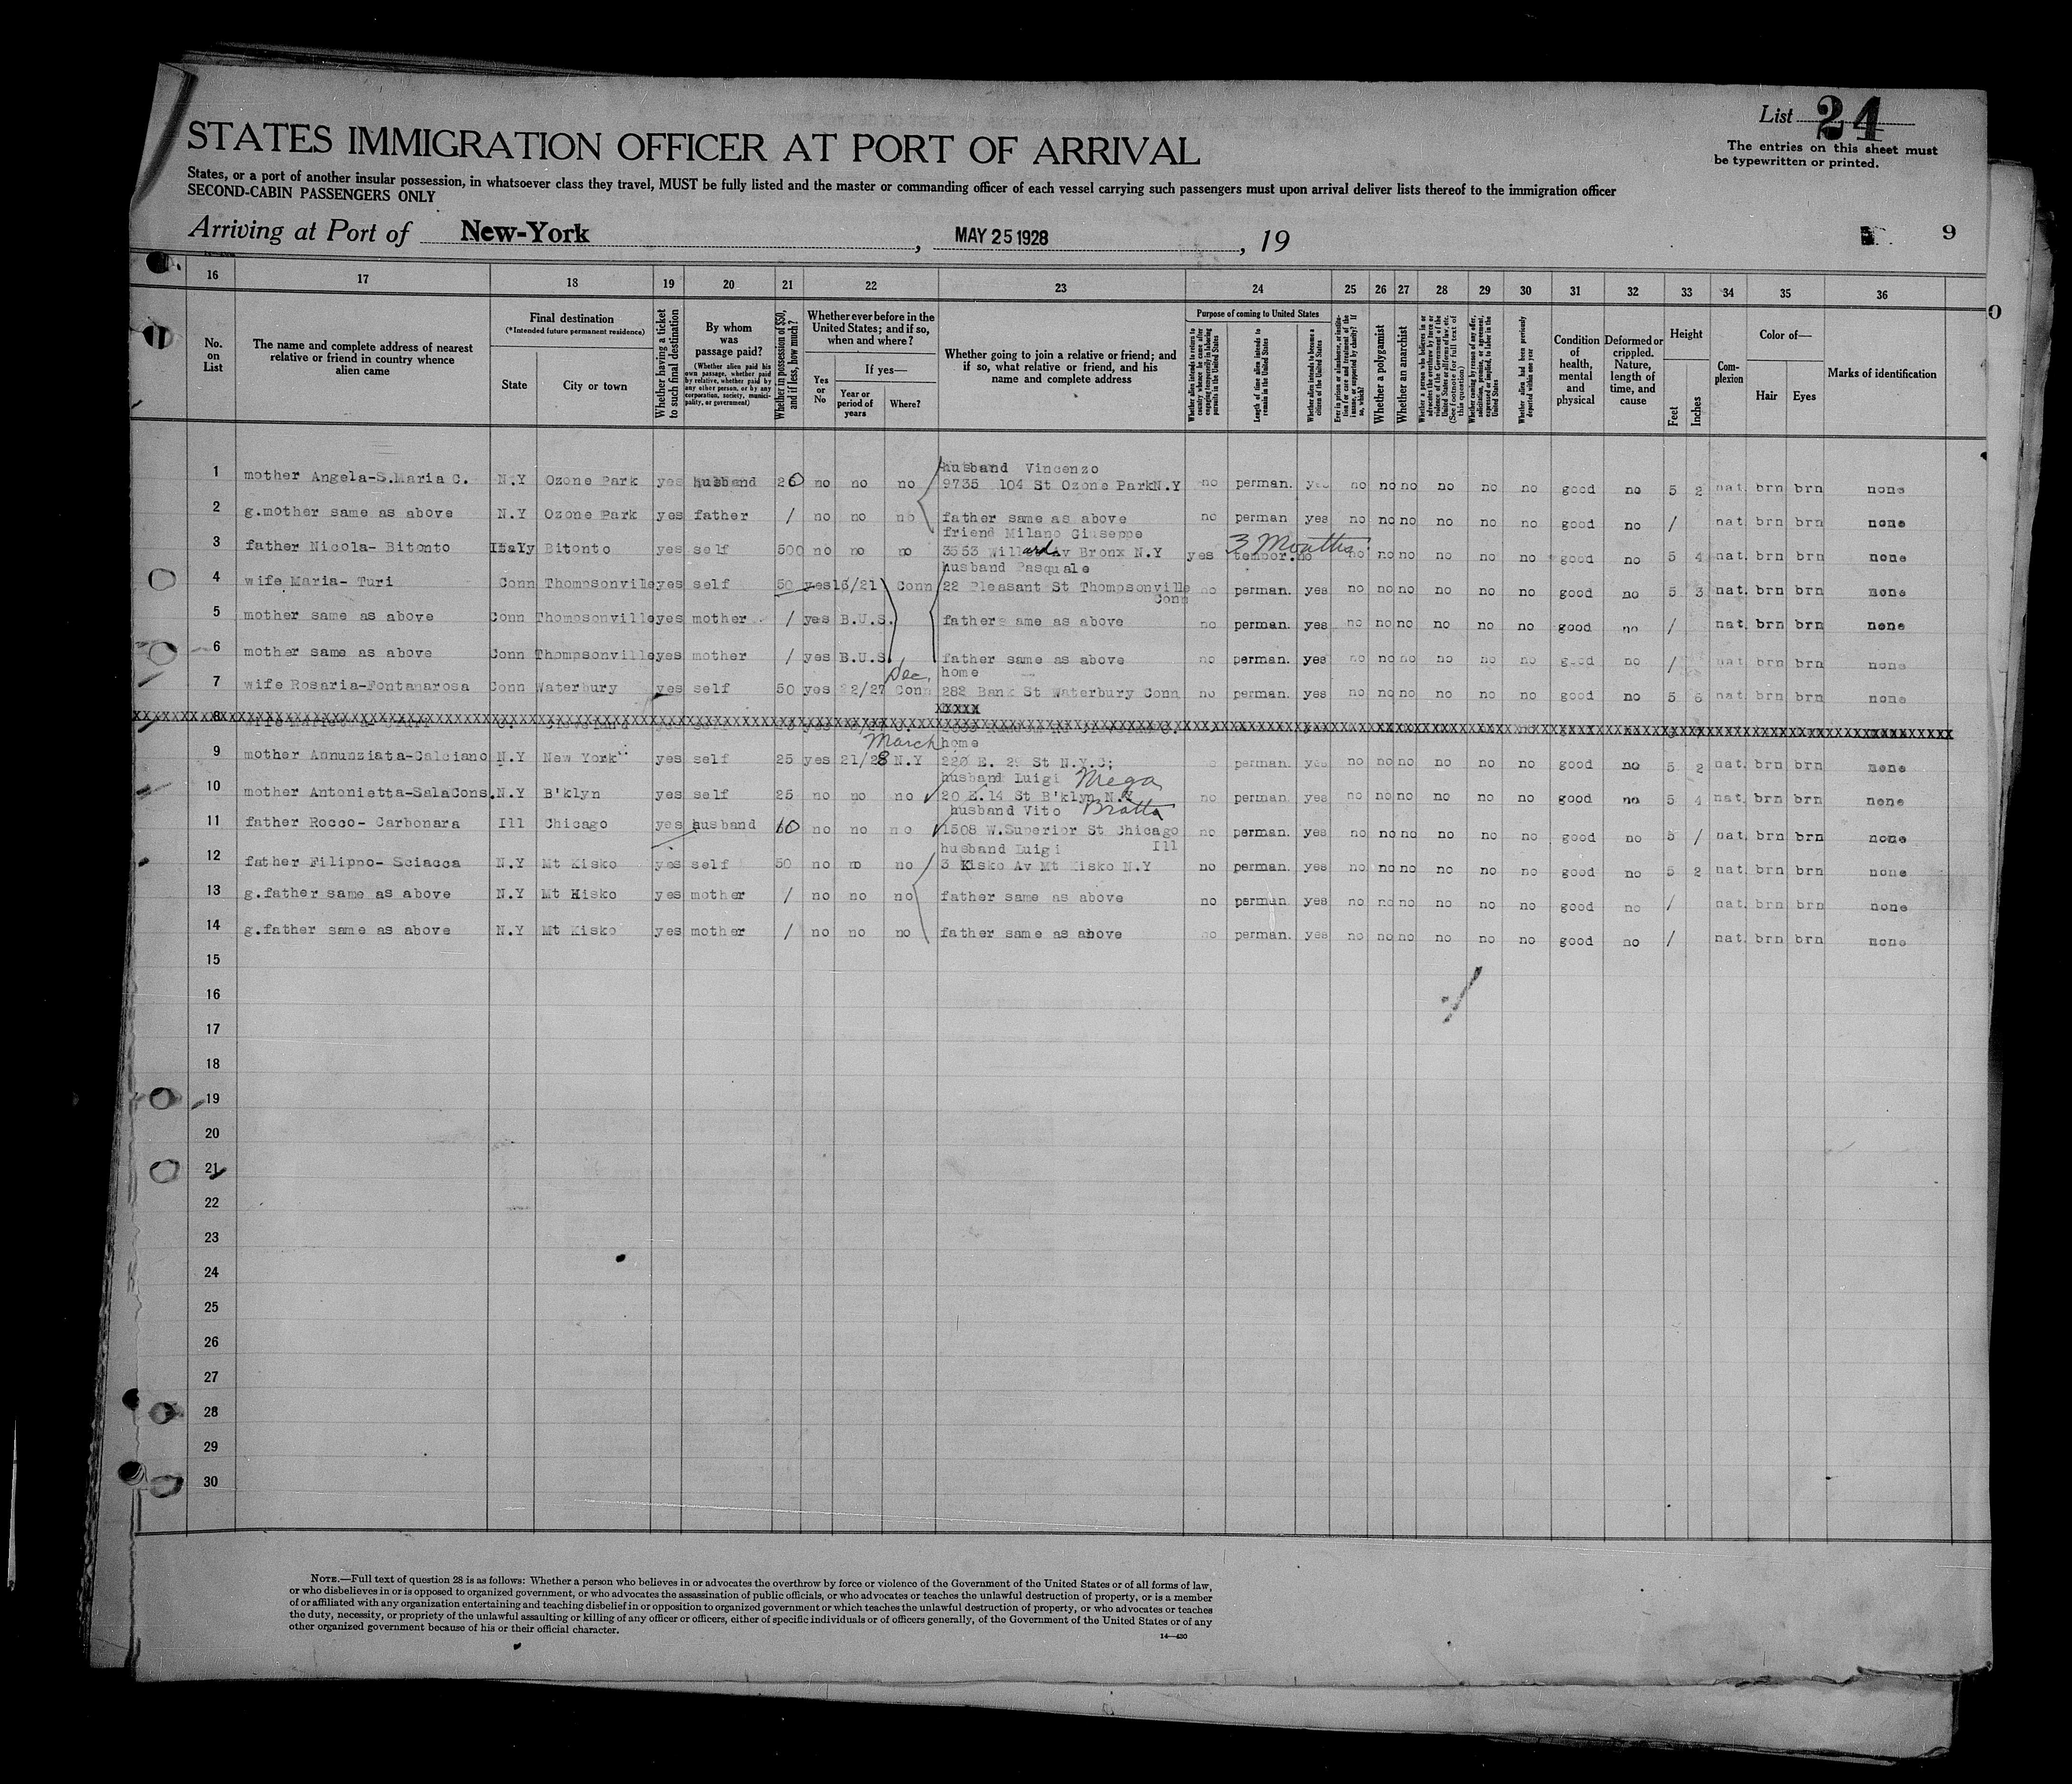 List 24
The entries on this sheet must
be typewritten or printed.
STATES IMMIGRATION OFFICER AT PORT OF ARRIVAL
States, or a port of another insular possession, in whatsoever class they travel, MUST be fully listed and the master or commanding officer of each vessel carrying such passengers must upon arrival deliver lists thereof to the immigration officer
SECOND-CABIN PASSENGERS ONLY
Arriving at Port of New-York, MAY 25 1928, 19
9
16 17 18 19 20 21 22 23 24 25 26 27 28 29 30 31 32 33 34 35 36
No. on List
The name and complete address of nearest relative or friend in country whence alien came
Final destination
(*Intended future permanent residence)
State
City or town
Whether having a ticket to such final destination
By whom was passage paid?
(Whether alien paid his own passage, whether paid by relative, whether paid by any other person, or by any corporation, society, municipality, or government)
Whether in possession of $50, and if less, how much?
Whether ever before in the United States; and if so, when and where?
Yes or No
If yes—
Year or period of years
Where?
Whether going to join a relative or friend; and if so, what relative or friend, and his name and complete address
Purpose of coming to United States
Whether alien intends to return to country whence he came after engaging temporarily in laboring pursuits in the United States
Length of time alien intends to remain in the United States
Whether alien intends to become a citizen of the United States
Ever in prison or almshouse, or institution for care and treatment of the insane, or supported by charity? If so, which?
Whether a polygamist
Whether an anarchist
Whether a person who believes in or advocates the overthrow by force or violence of the Government of the United States or all forms of law, etc. (See footnote for full text of this question)
Whether coming by reason of any offer, solicitation, promise, or agreement, expressed or implied, to labor in the United States
Whether alien had been previously deported within one year
Condition of health, mental and physical
Deformed or crippled. Nature, length of time, and cause
Height
Feet
Inches
Complexion
Color of—
Hair
Eyes
Marks of identification
husband Vincenzo
1 mother Angela-S.Maria C. N.Y Ozone Park yes husband 20 no no no 9735 104 St Ozone ParkN.Y no perman. yes no no no no no no good no 5 2 nat. brn brn none
2 g.mother same as above N.Y Ozone Park yes father / no no no father same as above no perman yes no no no no no no good no / nat. brn brn none
friend Milano Giuseppe 3 Months
3 father Nicola- Bitonto Italy Bitonto yes self 500 no no no 3553 Willard Av Bronx N.Y yes tempor. no no no no no no no good no 5 4 nat. brn brn none
husband Pasquale
4 wife Maria- Turi Conn Thompsonville yes self 50 yes 16/21 Conn 22 Pleasant St Thompsonville no perman. yes no no no no no no good no 5 3 nat. brn brn none
Conn
5 mother same as above Conn Thompsonville yes mother / yes B.U.S. fathers ame as above no perman. yes no no no no no no good no / nat. brn brn none
6 mother same as above Conn Thompsonville yes mother / yes B.U.S. father same as above no perman. yes no no no no no no good no / nat brn brn none
Dec, home
7 wife Rosaria-Fontanarosa Conn Waterbury yes self 50 yes 22/27 Conn 282 Bank St Waterbury Conn no perman. yes no no no no no no good no 5 6 nat. brn brn none
XXXXX
8
March home
9 mother Annunziata-Calciano N.Y New York yes self 25 yes 21/28 N.Y 220 E. 29 St N.Y.C; perman. yes no no no no no no good no 5 2 nat. brn brn none
husband Luigi Mega
10 mother Antonietta-SalaCons. N.Y B'klyn yes self 25 no no no 20 E.14 St B'klyn N.Y no perman. yes no no no no no no good no 5 4 nat. brn brn none
husband Vito Bratta
11 father Rocco- Carbonara Ill Chicago yes husband 60 no no no 1508 W.Superior St Chicago no perman. yes no no no no no no good no 5 / nat. brn brn none
husband Luigi Ill
12 father Filippo- Sciacca N.Y Mt Kisko yes self 50 no no no 3 Kisko Av Mt Kisko N.Y no perman. yes no no no no no no good no 5 2 nat. brn brn none
13 g.father same as above N.Y Mt Kisko yes mother / no no no father same as above no perman. yes no no no no no no good no / nat. brn brn none
14 g.father same as above N.Y Mt Kisko yes mother / no no no father same as above no perman. yes no no no no no no good no / nat. brn brn none
15
16
17
18
19
20
21
22
23
24
25
26
27
28
29
30
NOTE.—Full text of question 28 is as follows: Whether a person who believes in or advocates the overthrow by force or violence of the Government of the United States or of all forms of law,
or who disbelieves in or is opposed to organized government, or who advocates the assassination of public officials, or who advocates or teaches the unlawful destruction of property, or is a member
of or affiliated with any organization entertaining and teaching disbelief in or opposition to organized government or which teaches the unlawful destruction of property, or who advocates or teaches
the duty, necessity, or propriety of the unlawful assaulting or killing of any officer or officers, either of specific individuals or of officers generally, of the Government of the United States or of any
other organized government because of his or their official character.
14—430